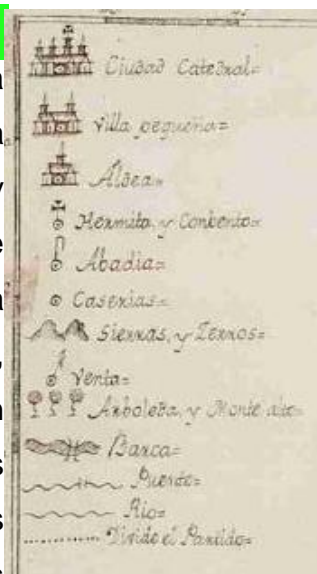 Ciudad Catedral=
Villa pequeña=
Aldea=
Hermita, y Conbento=
Abadia=
Caserias=
Sierras, y Zerros=
Venta=
Arboleda, y Monte alto=
Barca=
Puente=
Rio=
Divide el Partido=